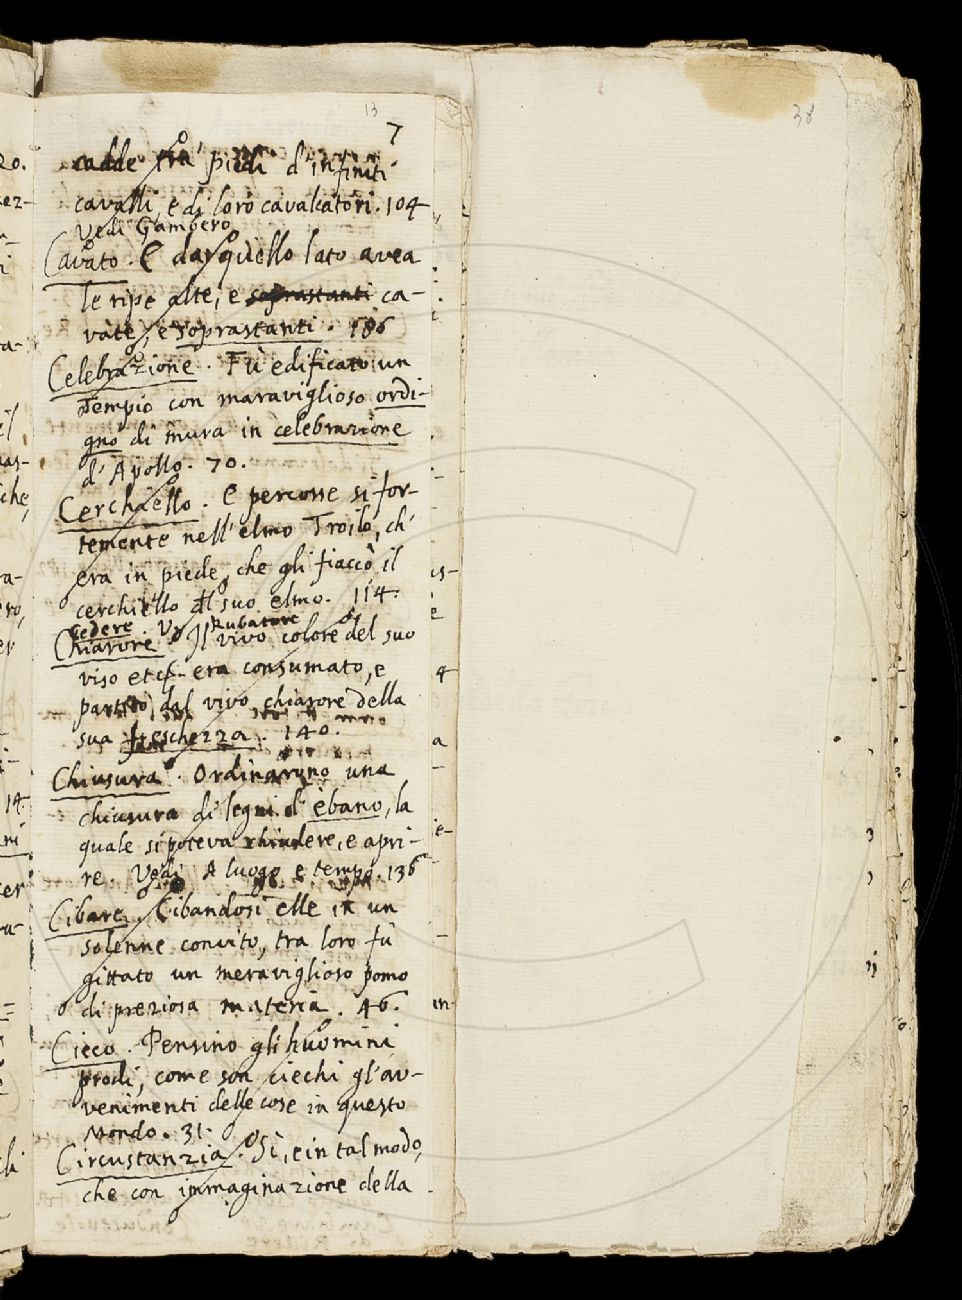 13
7
38
cadde tra' piedi d'infiniti
cavalli, e di loro cavalcatori. 104
Vedi Gambero
Cavato. E da quello lato avea
le ripe alte, e soprastanti ca-
vate, e soprastanti. 186
Celebrazione. Fù edificato un
Tempio con maraviglioso ordi-
gno di mura in celebrazione
d'Apollo. 70.
Cerchiello. E percosse si for-
temente nell'elmo Troilo, ch'
era in piede, che gli fiaccò il
cerchiello del suo elmo. 114.
Cedere. V. Rubatore
Chiarore. Il vivo colore del suo
viso era consumato, e
partito dal vivo chiarore della
sua freschezza. 140.
Chiusura. Ordinaruno una
chiusura di legni d'ebano, la
quale si poteva chiudere, e apri-
re. Vedi A luogo e tempo. 136
Cibare. Cibandosi elle in un
solenne convito, tra loro fù
gittato un meraviglioso pomo
di preziosa materia. 46.
Cieco. Pensino gli huomini
prodi, come son ciechi gl'av-
venimenti delle cose in questo
Mondo. 31.
Circustanzia. Sì, e in tal modo,
che con immaginazione della